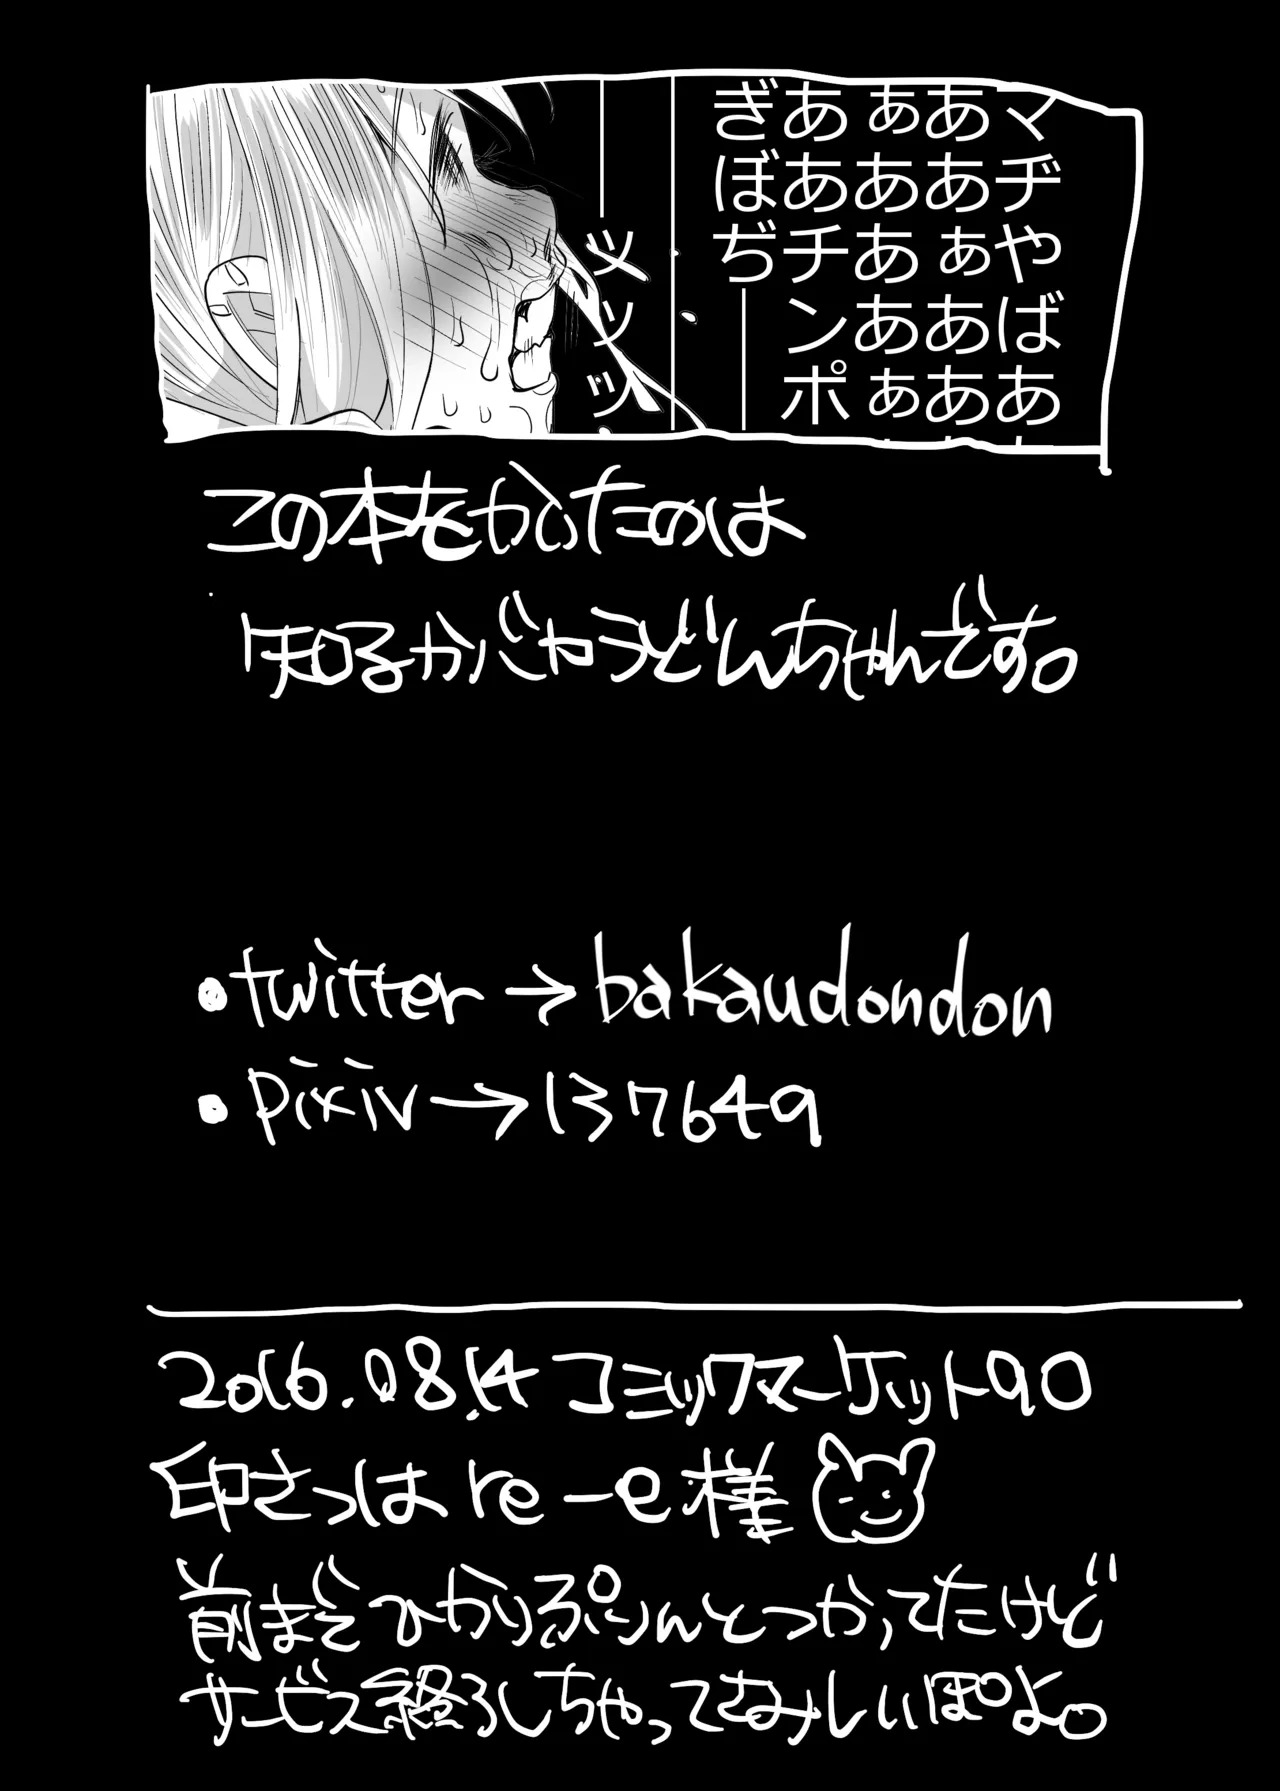 マヂやばあ
ああぁああ
ぁああああぁ
ああチンポ
ぎぼぢ――
――ッッッ
この本をかいたのは
知るかバカうどんちゃんです。
・twitter→bakaudondon
・pixiv→137649
2016.08.14コミックマーケット90
印さつはre-e様
前までひかりぷりんとつかってたけど
サービス終りしちゃってさみしいぽよ。